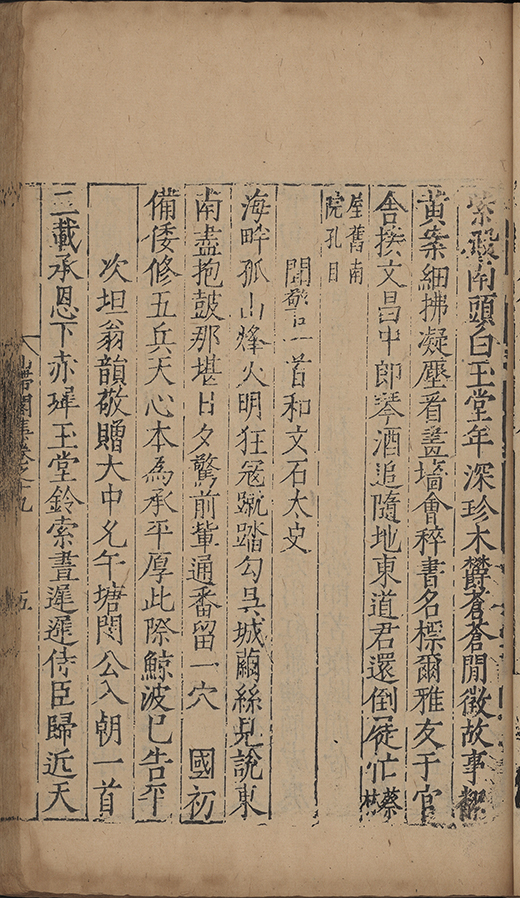 紫殿南頭白玉堂年深珍木欝蒼蒼閒徵故事繙
黃案細拂凝塵看畫墻會稡書名標爾雅友于官
舍揆文昌中郎琴酒追隨地東道君還倒屣忙蔡林
屋舊南
院孔目
聞警一首和文石太史
海畔孤山烽火明狂寇蹴踏勾吳城繭絲見說東
南盡抱鼓那堪日夕驚前軰通番留一穴 國初
備倭修五兵天心本為承平厚此際鯨波已告平
次坦翁韻敬贈大中丞午塘閔公入朝一首
三載承恩下赤墀玉堂鈴索晝遲遲侍臣歸近天
山帶閣集卷之九 五